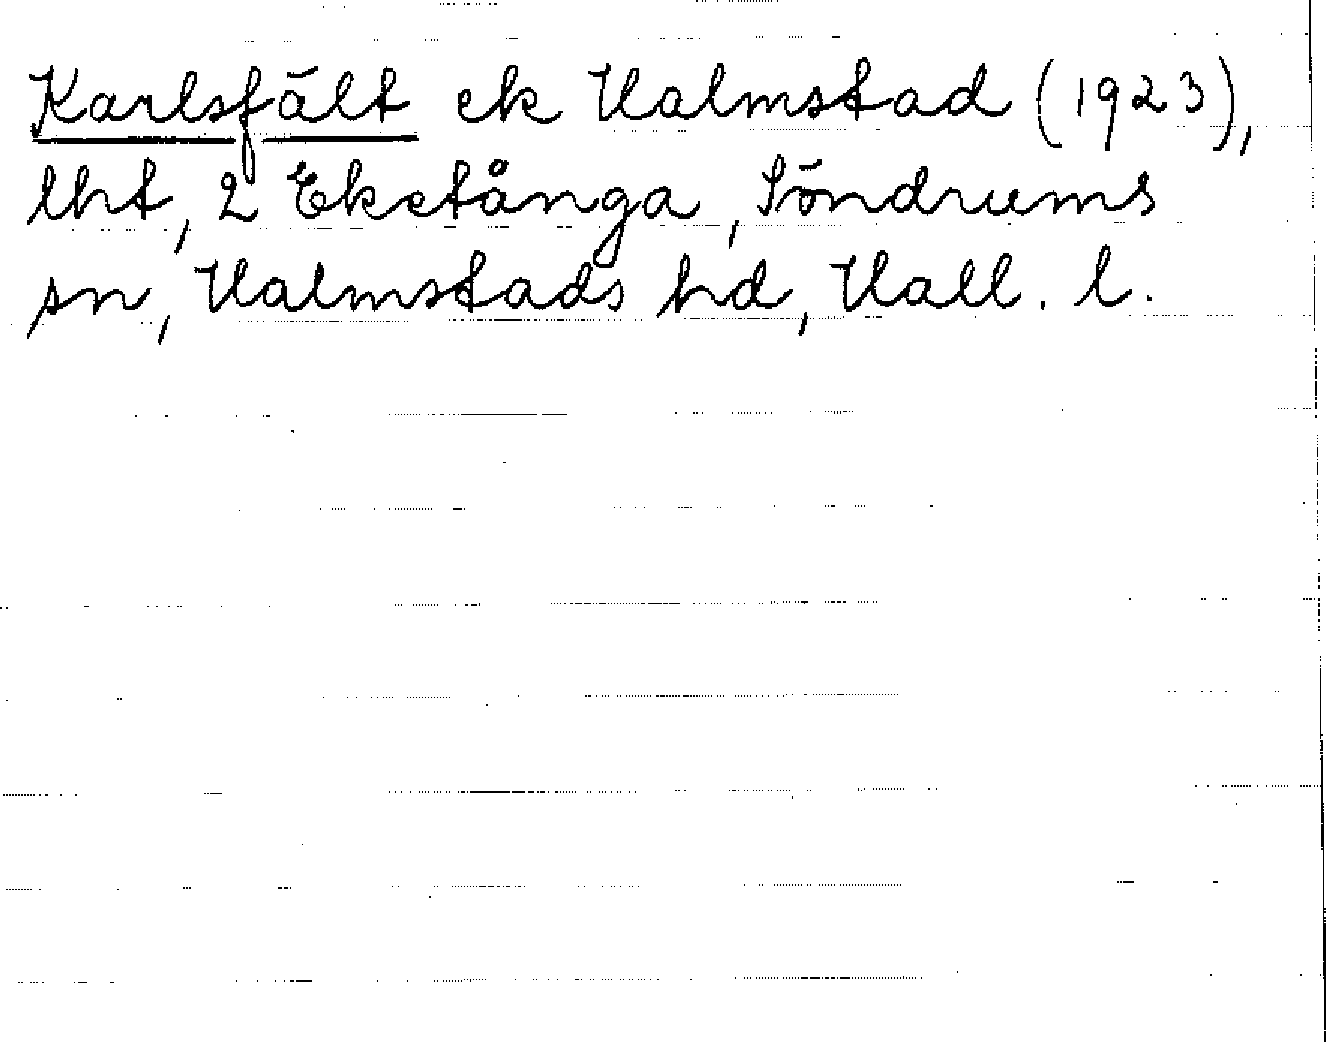 Karlsfält ek Halmstad (1923),
lht, 2 Eketånga, Söndrums
sn, Halmstads hd, Hall. l.